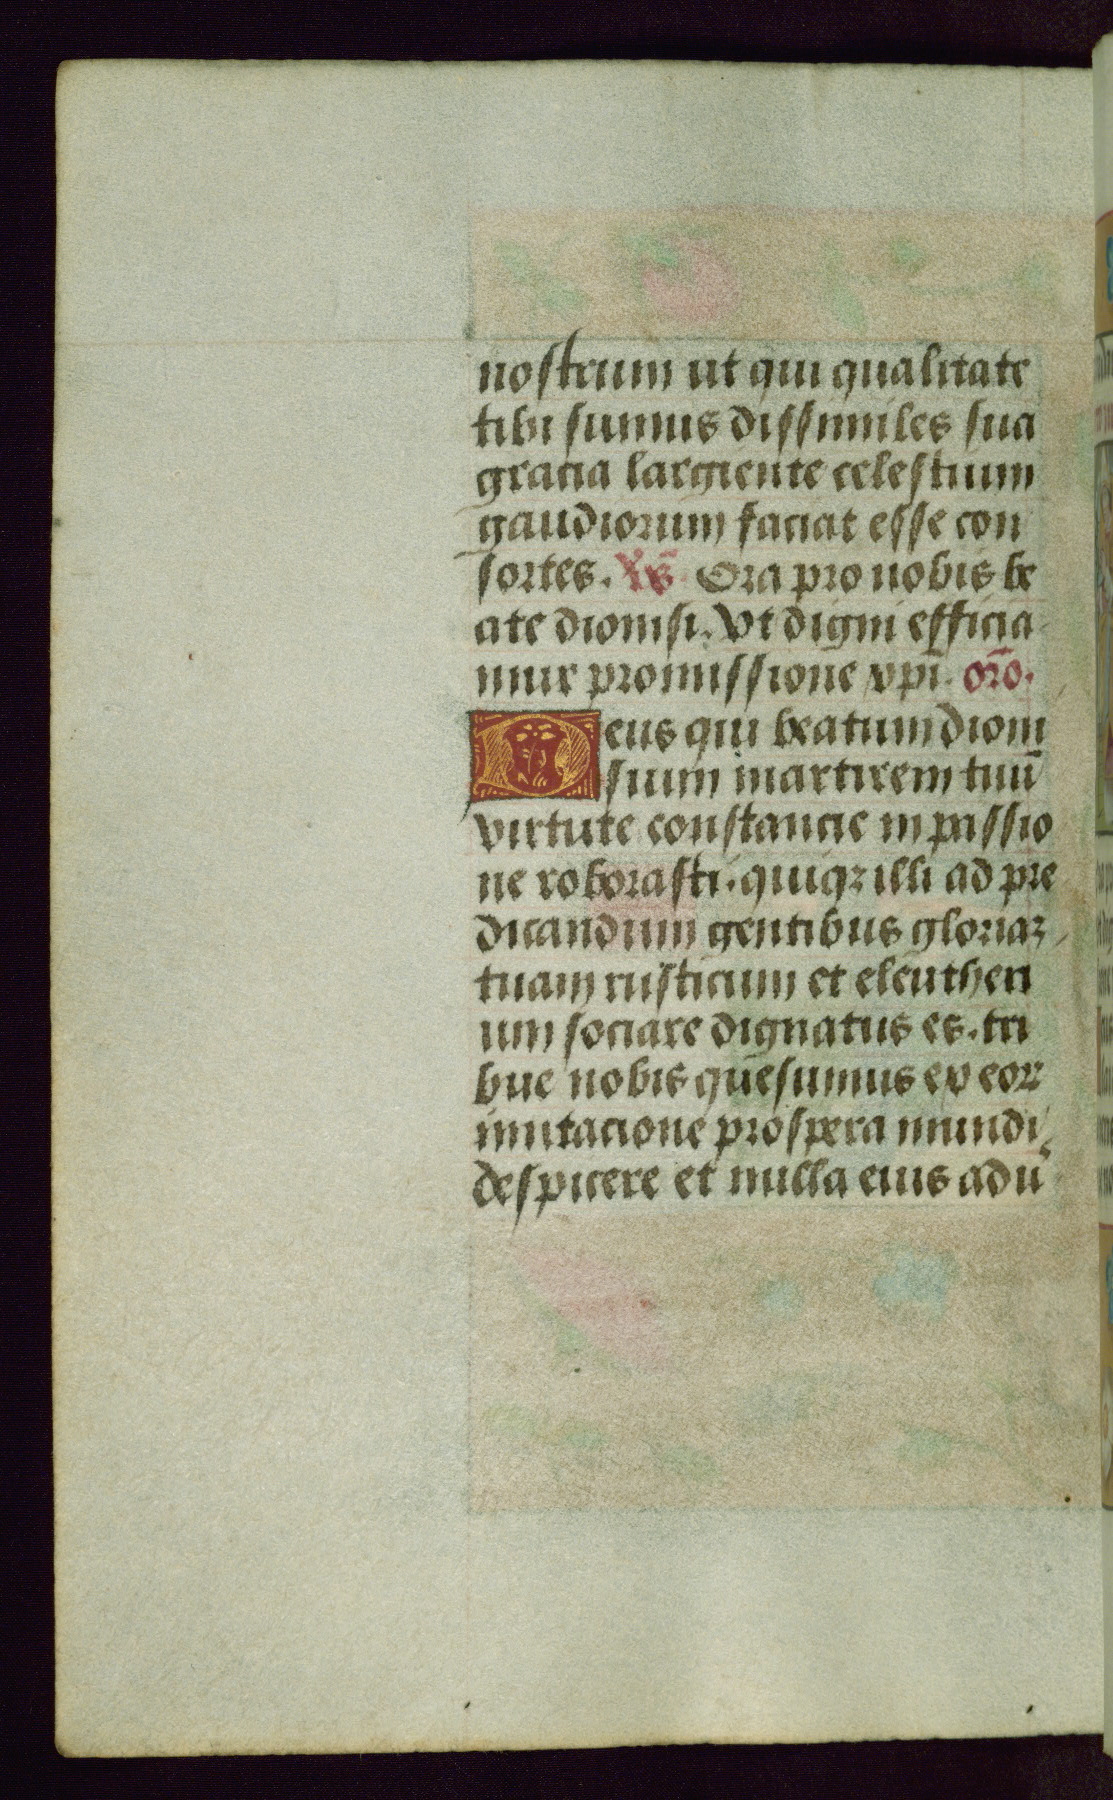 nostrum ut qui qualitate
tibi sumus dissimiles sua
gracia largiente celestium
gaudiorum faciat esse con
sortes. v̄s Ora pro nobis be
ate dionisi. Vt digni efficia
mur promissione xpi̅. or̅o.
Deus qui beatum dioni
sium martirem tuu̅
virtute constancie in passio
ne roborasti. quiqꝫ illi ad pre
dicandum gentibus gloriaꝫ
tuam rusticum et eleutheri
um sociare dignatus es. tri
bue nobis que̅sumus ex eoꝝ
imitacione prospera mundi
despicere et nulla eius adu̅